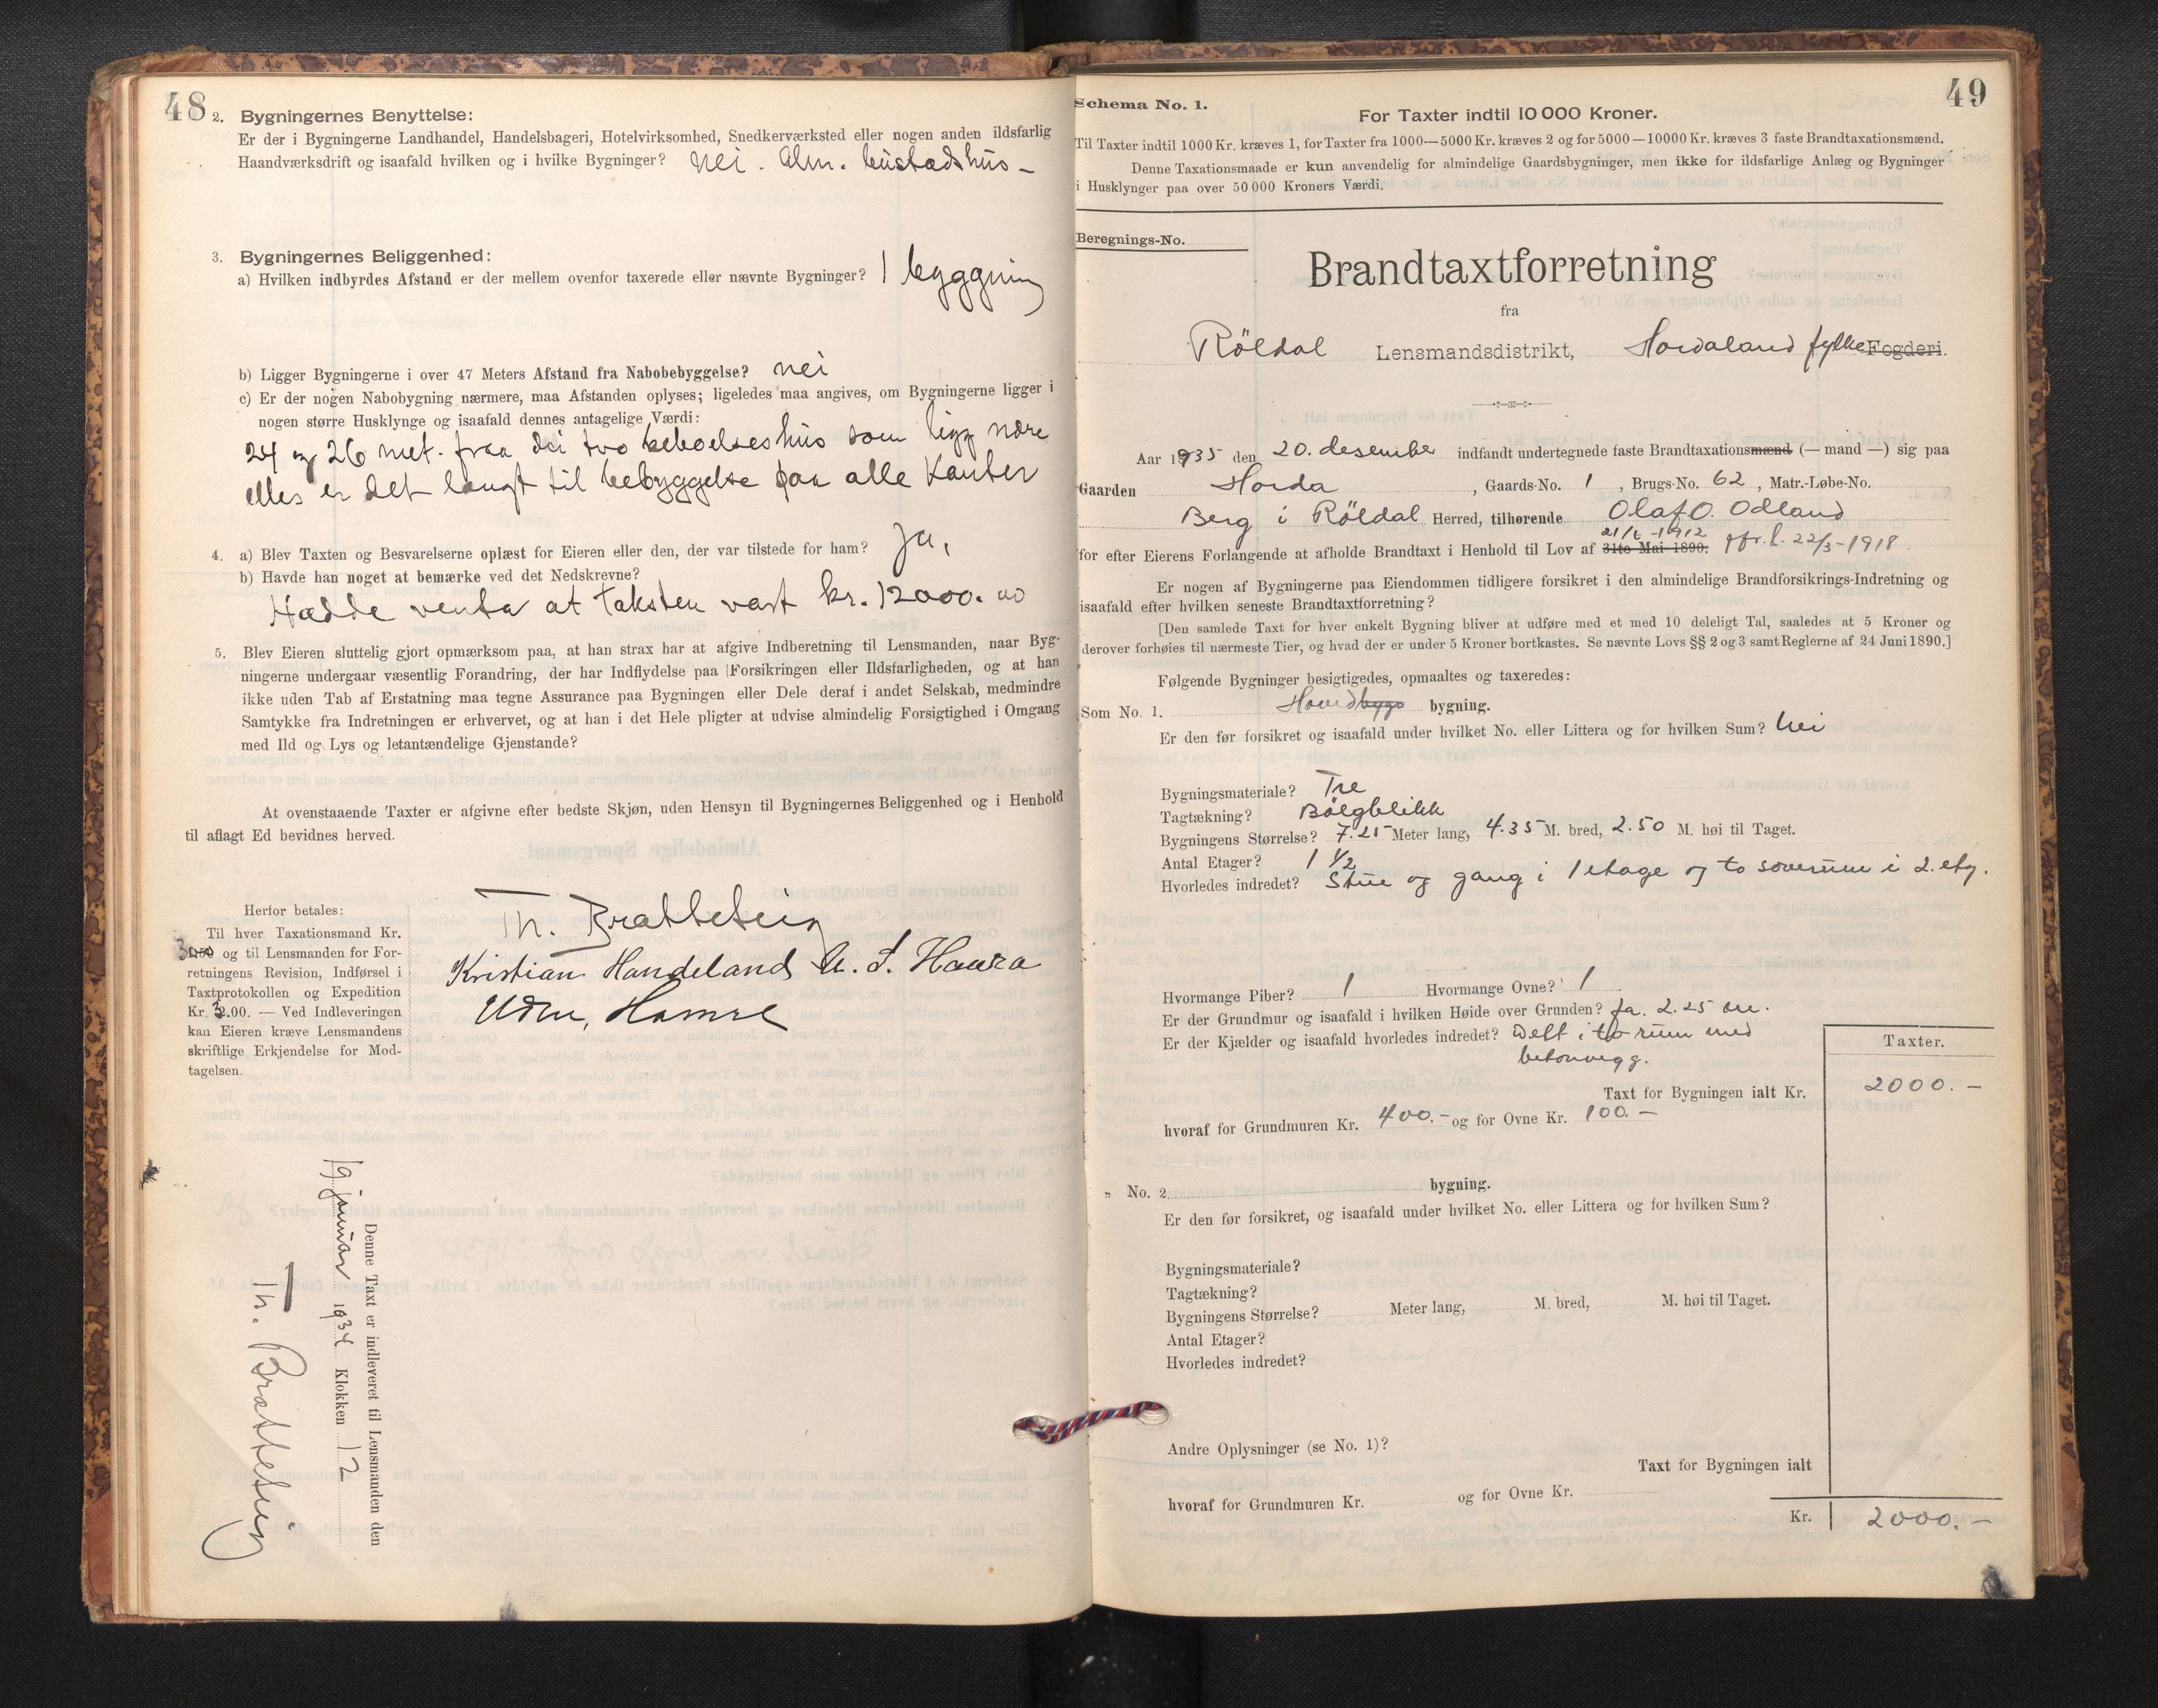 48
2. Bygningernes Benyttelse:
Er der i Bygningerne Landhandel, Handelsbageri, Hotelvirksomhed, Snedkerværksted eller nogen anden ildsfarlig
Haandværksdrift og isaafald hvilken og i hvilke Bygninger? nei. Alm. bustadshus –
3. Bygningernes Beliggenhed:
a) Hvilken indbyrdes Afstand er der mellem ovenfor taxerede eller nævnte Bygninger? 1 byggning
b) Ligger Bygningerne i over 47 Meters Afstand fra Nabobebyggelse? nei
c) Er der nogen Nabobygning nærmere, maa Afstanden oplyses; ligeledes maa angives, om Bygningerne ligger i
nogen større Husklynge og isaafald dennes antagelige Værdi:
24 og 26 met. fraa dei tvo beboelseshus som ligg nære
elles er det langt til bebyggelse paa alle Kanter
4. a) Blev Taxten og Besvarelserne oplæst for Eieren eller den, der var tilstede for ham? Ja,
b) Havde han noget at bemærke ved det Nedskrevne?
Hadde venta at taksten vart kr. 12000.00
5. Blev Eieren sluttelig gjort opmærksom paa, at han strax har at afgive Indberetning til Lensmanden, naar Byg-
ningerne undergaar væsentlig Forandring, der har Indflydelse paa Forsikringen eller Ildsfarligheden, og at han
ikke uden Tab af Erstatning maa tegne Assurance paa Bygningen eller Dele deraf i andet Selskab, medmindre
Samtykke fra Indretningen er erhvervet, og at han i det Hele pligter at udvise almindelig Forsigtighed i Omgang
med Ild og Lys og letantændelige Gjenstande?
At ovenstaaende Taxter er afgivne efter bedste Skjøn, uden Hensyn til Bygningernes Beliggenhed og i Henhold
til aflagt Ed bevidnes herved.
Th. Bratteteig
Kristian Handeland
Herfor betales:
Til hver Taxationsmand Kr.
og til Lensmanden for For-
retningens Revision, Indførsel i
Taxtprotokollen og Expedition
Kr. 3.00. — Ved Indleveringen
kan Eieren kræve Lensmandens
skriftlige Erkjendelse for Mod-
tagelsen.
Denne Taxt er indleveret til Lensmanden den
19 januar 1934 Klokken 12
Th. Bratteteig
49
Schema No. 1.
For Taxter indtil 10 000 Kroner.
Til Taxter indtil 1000 Kr. kræves 1, for Taxter fra 1000—5000 Kr. kræves 2 og for 5000—10000 Kr. kræves 3 faste Brandtaxationsmænd.
Denne Taxationsmaade er kun anvendelig for almindelige Gaardsbygninger, men ikke for ildsfarlige Anlæg og Bygninger
i Husklynger paa over 50 000 Kroners Værdi.
Beregnings-No.
Brandtaxtforretning
fra
Röldal Lensmandsdistrikt, Hordaland fylke Fogderi.
Aar 1935 den 20. desember indfandt undertegnede faste Brandtaxationsmænd (— mand —) sig paa
Gaarden Horda , Gaards-No. 1 , Brugs-No. 62 , Matr.-Løbe-No.
Berg i Röldal Herred, tilhørende Olaf O. Odland
for efter Eierens Forlangende at afholde Brandtaxt i Henhold til Lov af 31te Mai 1890. jfr. l. 22/3-1918
Er nogen af Bygningerne paa Eiendommen tidligere forsikret i den almindelige Brandforsikrings-Indretning og
isaafald efter hvilken seneste Brandtaxtforretning?
[Den samlede Taxt for hver enkelt Bygning bliver at udføre med et med 10 deleligt Tal, saaledes at 5 Kroner og
derover forhøies til nærmeste Tier, og hvad der er under 5 Kroner bortkastes. Se nævnte Lovs §§ 2 og 3 samt Reglerne af 24 Juni 1890.]
Følgende Bygninger besigtigedes, opmaaltes og taxeredes:
Som No. 1. Hovedbygg bygning.
Er den før forsikret og isaafald under hvilket No. eller Littera og for hvilken Sum? Nei
Bygningsmateriale? Tre
Tagtækning? Bölgblikk
Bygningens Størrelse? 7.25 Meter lang, 4.35 M. bred, 2.50 M. høi til Taget.
Antal Etager? 1 1/2
Hvorledes indredet? Stue og gang i 1 etage og to soverum i 2. etg.
Hvormange Piber? 1 Hvormange Ovne? 1
Er der Grundmur og isaafald i hvilken Høide over Grunden? Ja. 2.25 m.
Er der Kjælder og isaafald hvorledes indredet? Delt i to rum med
betonvegg.
Taxter.
Taxt for Bygningen ialt Kr. 2000.–
hvoraf for Grundmuren Kr. 400.– og for Ovne Kr. 100.–
„ No. 2 bygning.
Er den før forsikret, og isaafald under hvilket No. eller Littera og for hvilken Sum?
Bygningsmateriale?
Tagtækning?
Bygningens Størrelse? Meter lang, M. bred, M. høi til Taget.
Antal Etager?
Hvorledes indredet?
Andre Oplysninger (se No. 1)?
Taxt for Bygningen ialt
hvoraf for Grundmuren Kr. og for Ovne Kr.
Kr. 2000.–